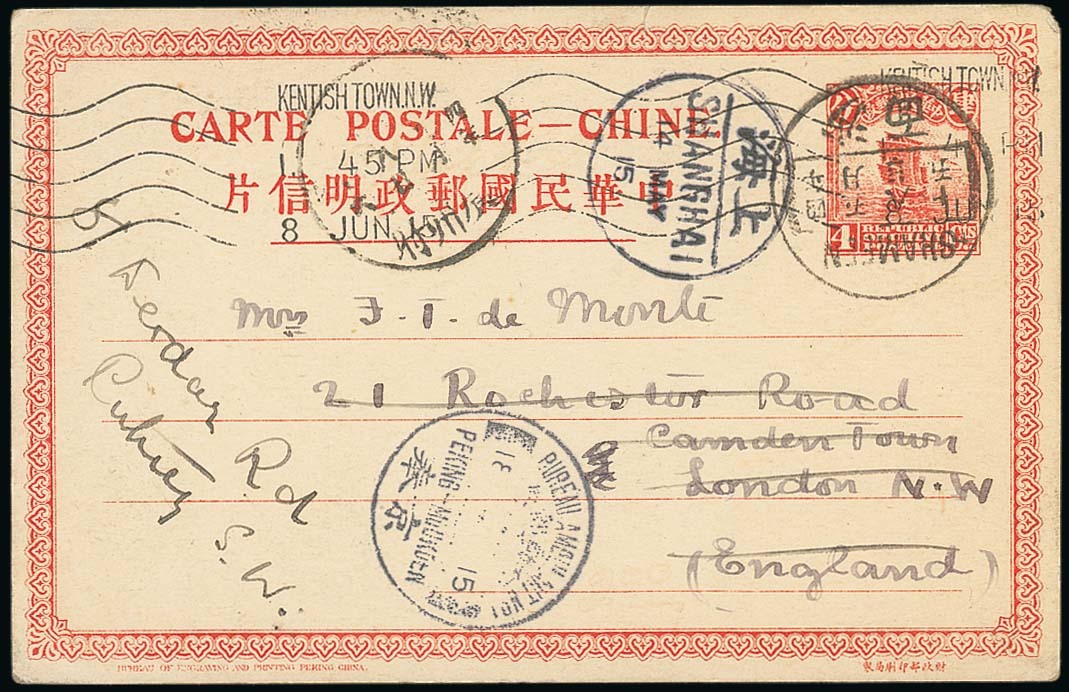 KENTISH TOWN.N.W.
KENTISH TOWN
CARTE POSTALE—CHINE
45 PM
片信明政郵國民華中
8 JUN 15
上海
SHANGHAI
14 MAY 15
SHAMEEN
4
Mrs F. T. de Monte
21 Rochester Road
Camden Town
London N.W
(England)
5
Rd
S.W.
BUREAU AMBULANT No1
PEKING-MOUKDEN
18
15
BUREAU OF ENGRAVING AND PRINTING PEKING CHINA.
財政部印刷局製